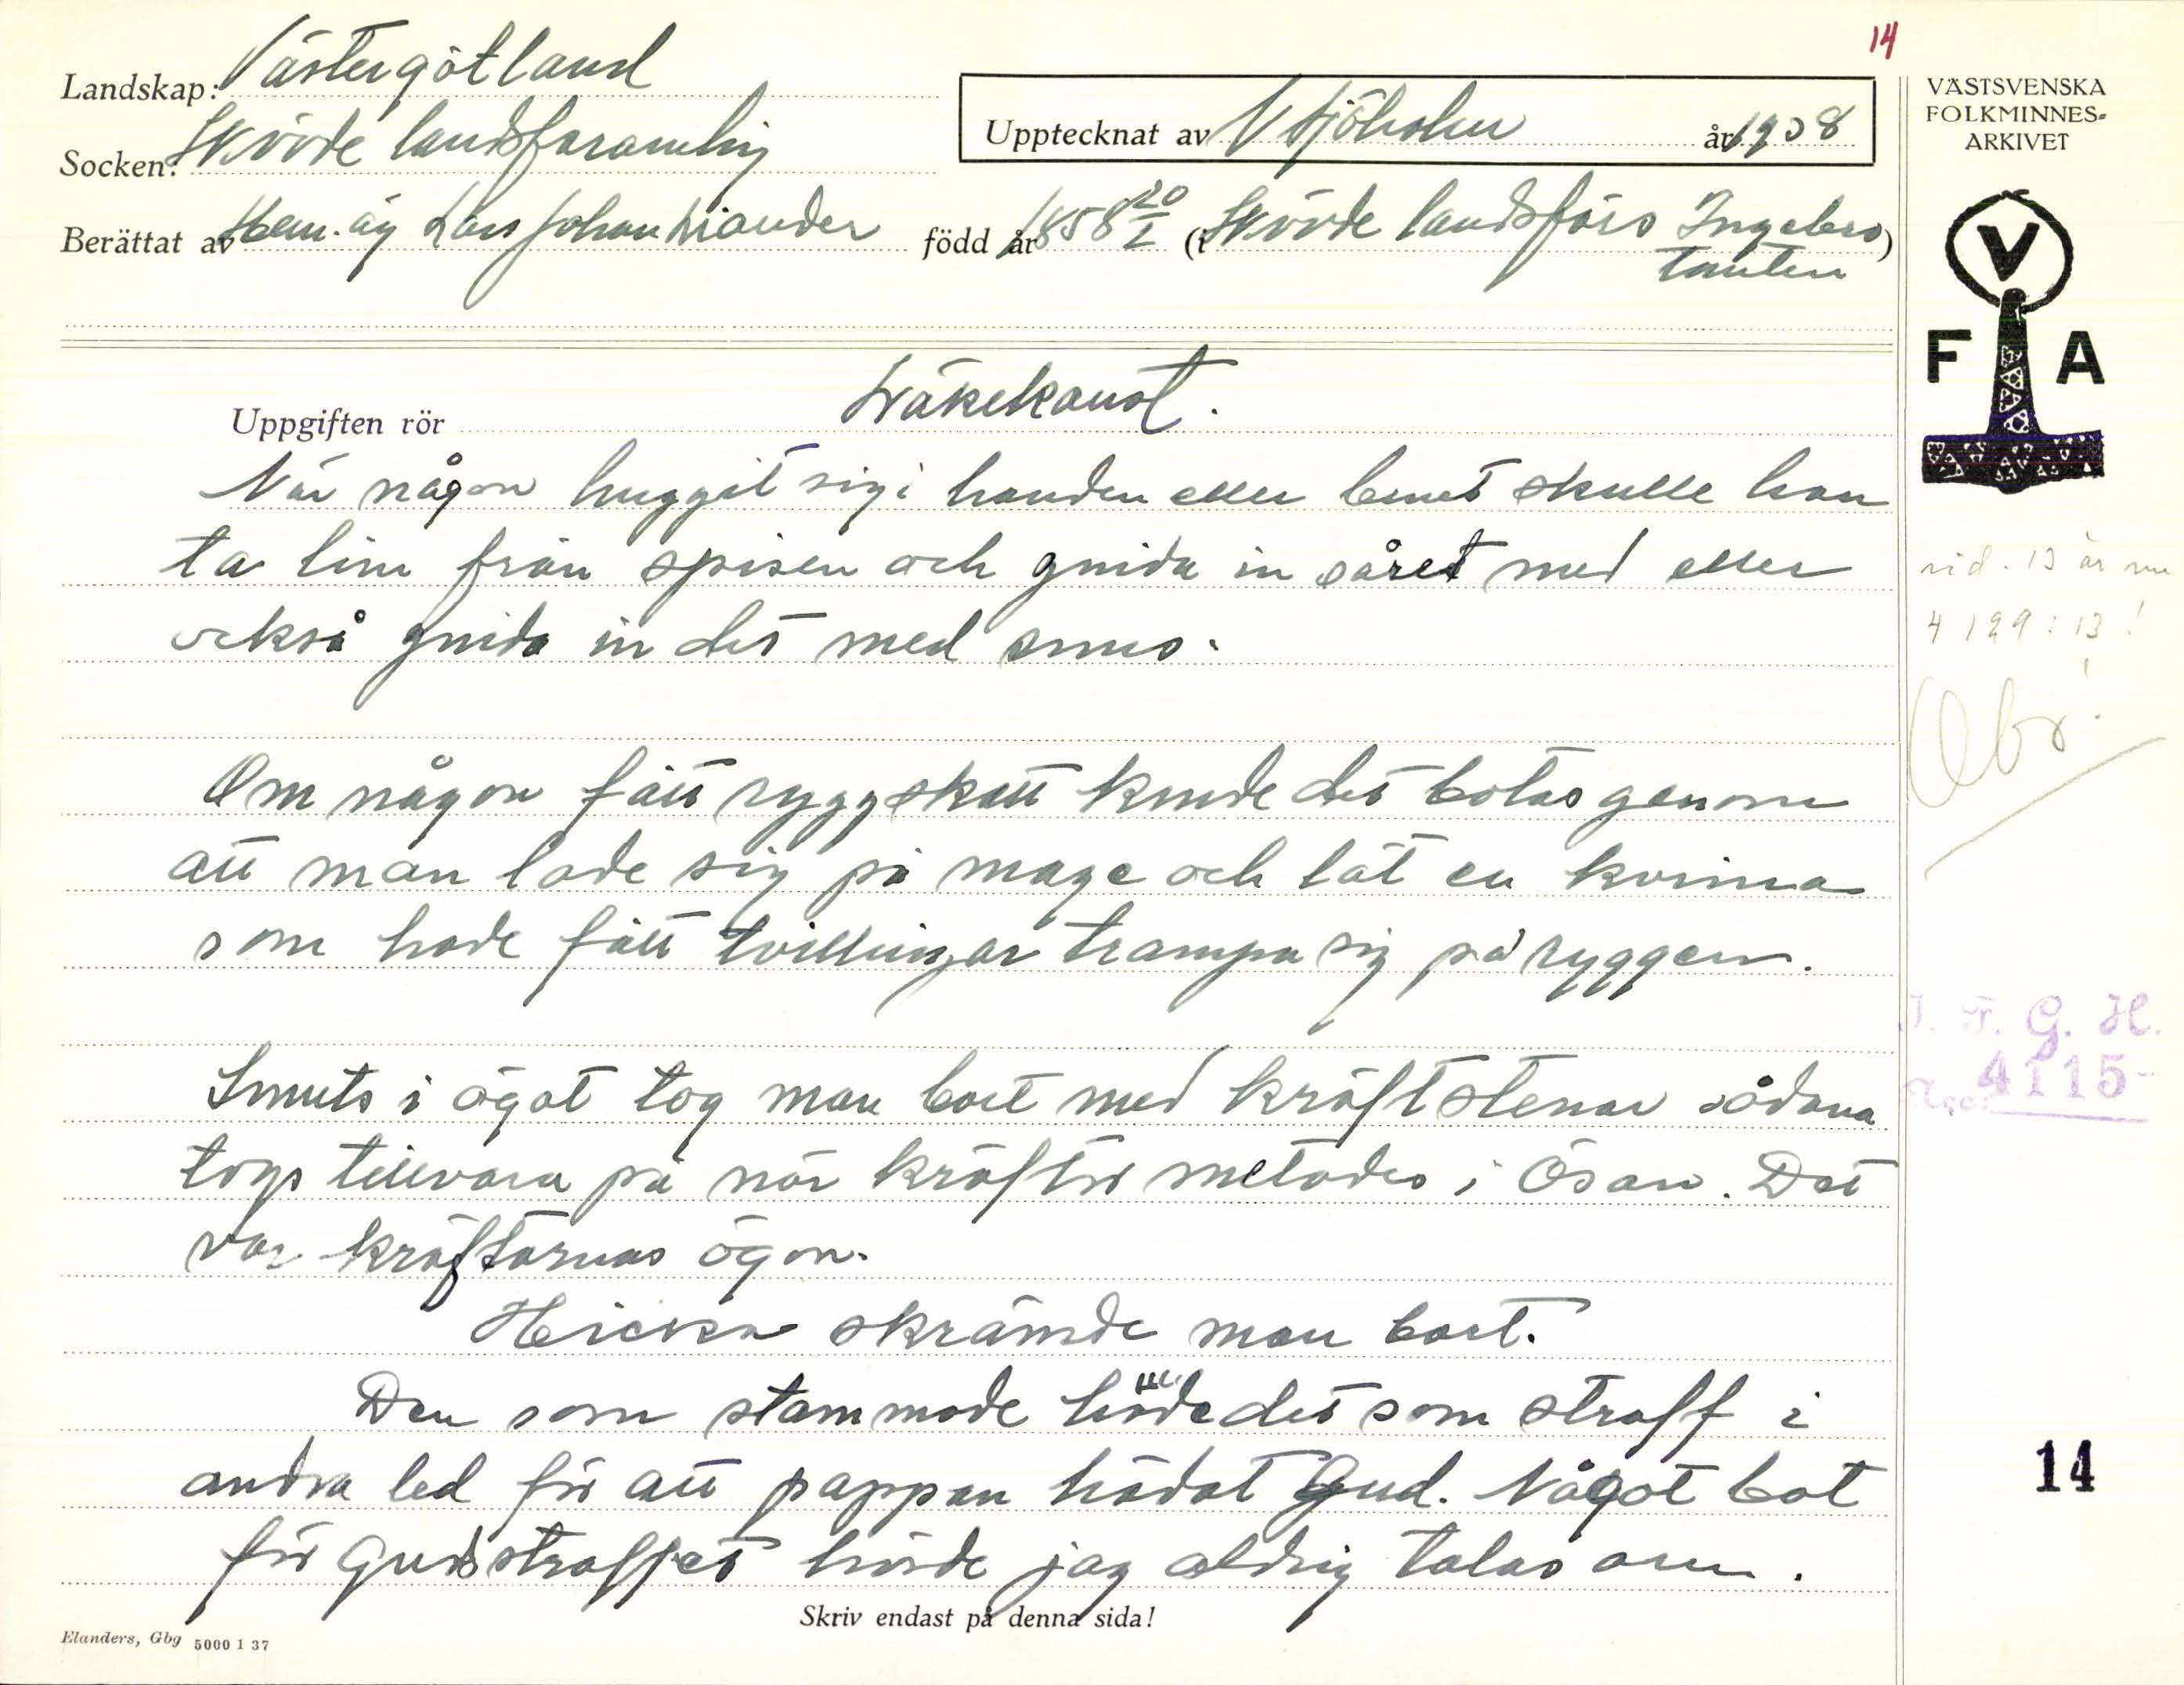 14
Landskap: Västergötland
Socken: Skövde landsforamling
Upptecknat av N Sjöholm år 1938
Berättat av Hem. äg Lars Johan Liander född år 1858 20/I (i Skövde landsförs Ingebers
tomten)
VÄSTSVENSKA
FOLKMINNES-
ARKIVET
V
F A
Uppgiften rör Läkekonst.
När någon huggit sig i handen eller benet skulle han
ta lim från spisen och gnida in såret med eller
också gnida in det med snus.
Om någon fått ryggskott kunde det botas genom
att man lade sig på mage och lät en kvinna
som hade fått tvillingar trampa sig på ryggen.
Smuts i ögat tog man bort med kräftstenar sådana
togs tillvara på när kräftor metades i Ösan. Det
var kräftornas ögon.
Hicka skrämde man bort.
Den som stammade hade det som straff i
andra led för att pappan hädat Gud. Något bot
för Gudsstraffet hörde jag aldrig talas om.
sid. 13 är nu
4129:13!
Obs!
I. F. G. H.
Acc. 4115
14
Skriv endast på denna sida!
Elanders, Gbg 5000 1 37